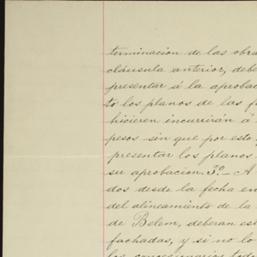 terminacion de las obra
cláusula anterior, debe
presentar á la aprobac
to los planos de las fa
hicieren incurrirán á
pesos sin que por esto
presentar los planos
su aprobacion 3º - A
dos desde la fecha en
del alineamiento de la
de Belem, deberan es
fachadas, y si no lo
los concesionarios tod